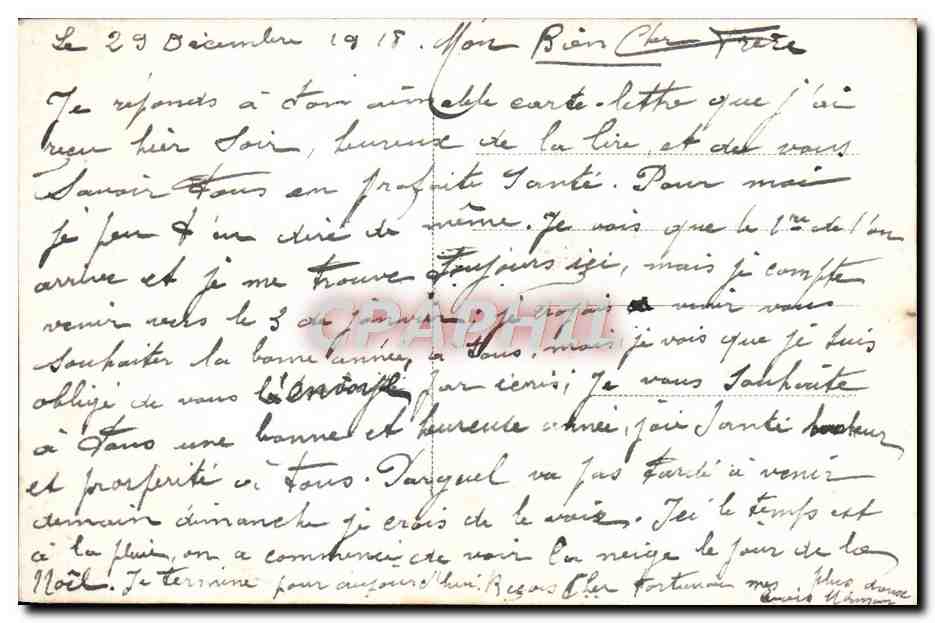 Le 29 Décembre 1918. Mon Bien Cher Frère
Je réponds à ton aimable carte-lettre que j'ai
reçu hier soir, heureux de la lire, et de vous
Savoir tous en profaite Santé. Pour moi
je peu t'en dire de même. Je vois que le 1re de l'an
arrive et je me trouve toujours içi, mais je compte
venir vers le 3 du janvier; je croyais venir vous
souhaiter la bonne année, à tous, mais je vois que je suis
obligé de vous l'envoyé par écris; Je vous Souhaite
à tous une bonne et heureuse année, joie Santé
et prosperité à tous. va pas tardé à venir
demain dimanche je crois de le voir. Ici le temps est
à la pluie, on a commencé de voir la neige le jour de la
Noël. Je termine pour aujourd'hui. Reçois Cher Fortuné mes plus doux